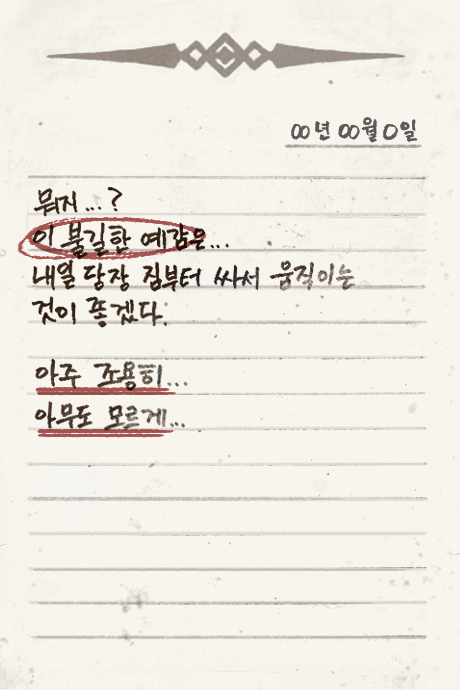 00년 00월 0일
뭐지...?
이 불길한 예감은...
내일 당장 짐부터 싸서 움직이는
것이 좋겠다.
아주 조용히...
아무도 모르게...